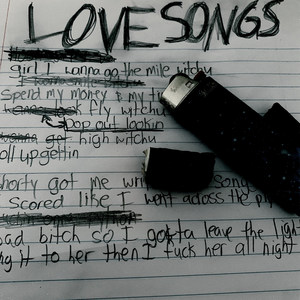 LOVE SONGS
girl I wanna go the mile witchu
Spend my money & my
fly witchu
Pop out lookin
wanna get high witchu
oll up gettin
horty got me wri songs
scored like I went adoss the
bad bitch so I gotta leave the ligh
ng it to her then I fuck her all night